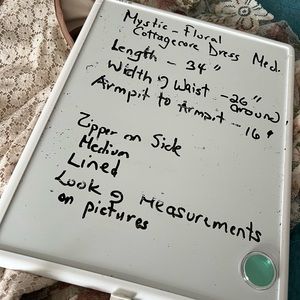 Mystic-Floral
Cottagecore Dress Med.
Length - 34"
Width of Waist - 26" around
Armpit to Armpit - 16"
Zipper on Side
Medium
Lined
Look @ Measurements
on pictures